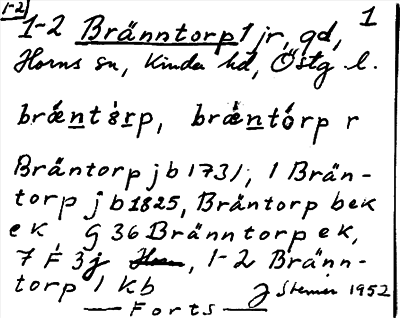 1-2
1-2 Bränntorp 1 jr, gd, 1
Horns sn, Kinda hd, Östg l.
brǽntɔrp, brǽntórp r
Bräntorp jb 1731, 1 Brän-
torp jb 1825, Bräntorp bek
ek G 36 Bränntorp ek,
7 F 3j, 1-2 Bränn-
torp 1 kb
J Stemer 1952
— Forts —